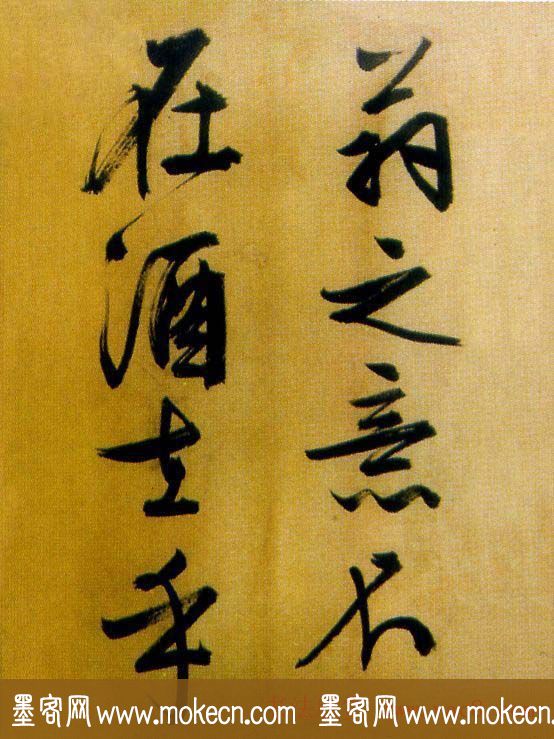 翁之意不
在酒在乎
墨客网 www.mokecn.com 墨客网 www.mokecn.com